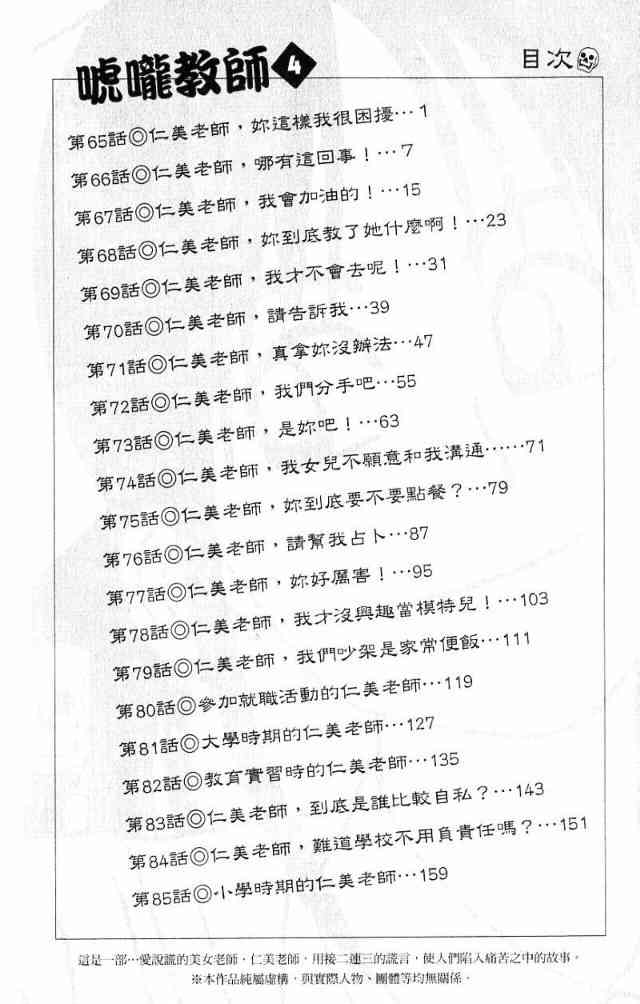 唬嚨教師4
目次
第65話◎仁美老師，妳這樣我很困擾…1
第66話◎仁美老師，哪有這回事！…7
第67話◎仁美老師，我會加油的！…15
第68話◎仁美老師，妳到底教了她什麼啊！…23
第69話◎仁美老師，我才不會去呢！…31
第70話◎仁美老師，請告訴我…39
第71話◎仁美老師，真拿妳沒辦法…47
第72話◎仁美老師，我們分手吧…55
第73話◎仁美老師，是妳吧！…63
第74話◎仁美老師，我女兒不願意和我溝通……71
第75話◎仁美老師，妳到底要不要點餐？…79
第76話◎仁美老師，請幫我占卜…87
第77話◎仁美老師，妳好厲害！…95
第78話◎仁美老師，我才沒興趣當模特兒！…103
第79話◎仁美老師，我們吵架是家常便飯…111
第80話◎參加就職活動的仁美老師…119
第81話◎大學時期的仁美老師…127
第82話◎教育實習時的仁美老師…135
第83話◎仁美老師，到底是誰比較自私？…143
第84話◎仁美老師，難道學校不用負責任嗎？…151
第85話◎小學時期的仁美老師…159
這是一部…愛說謊的美女老師，仁美老師，用接二連三的謊言，使人們陷入痛苦之中的故事。
※本作品純屬虛構，與實際人物、團體等均無關係。